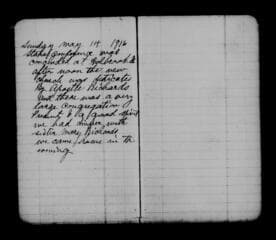 Sunday May 14, 1916
Stake Conference was
convened at Holbrook &
after noon the new
church was dedicated
By Apostle Richards
and there was a very
large congregation
Present & a good spirit
we had dinner with
sister Mary Richards
we came home in the
evening